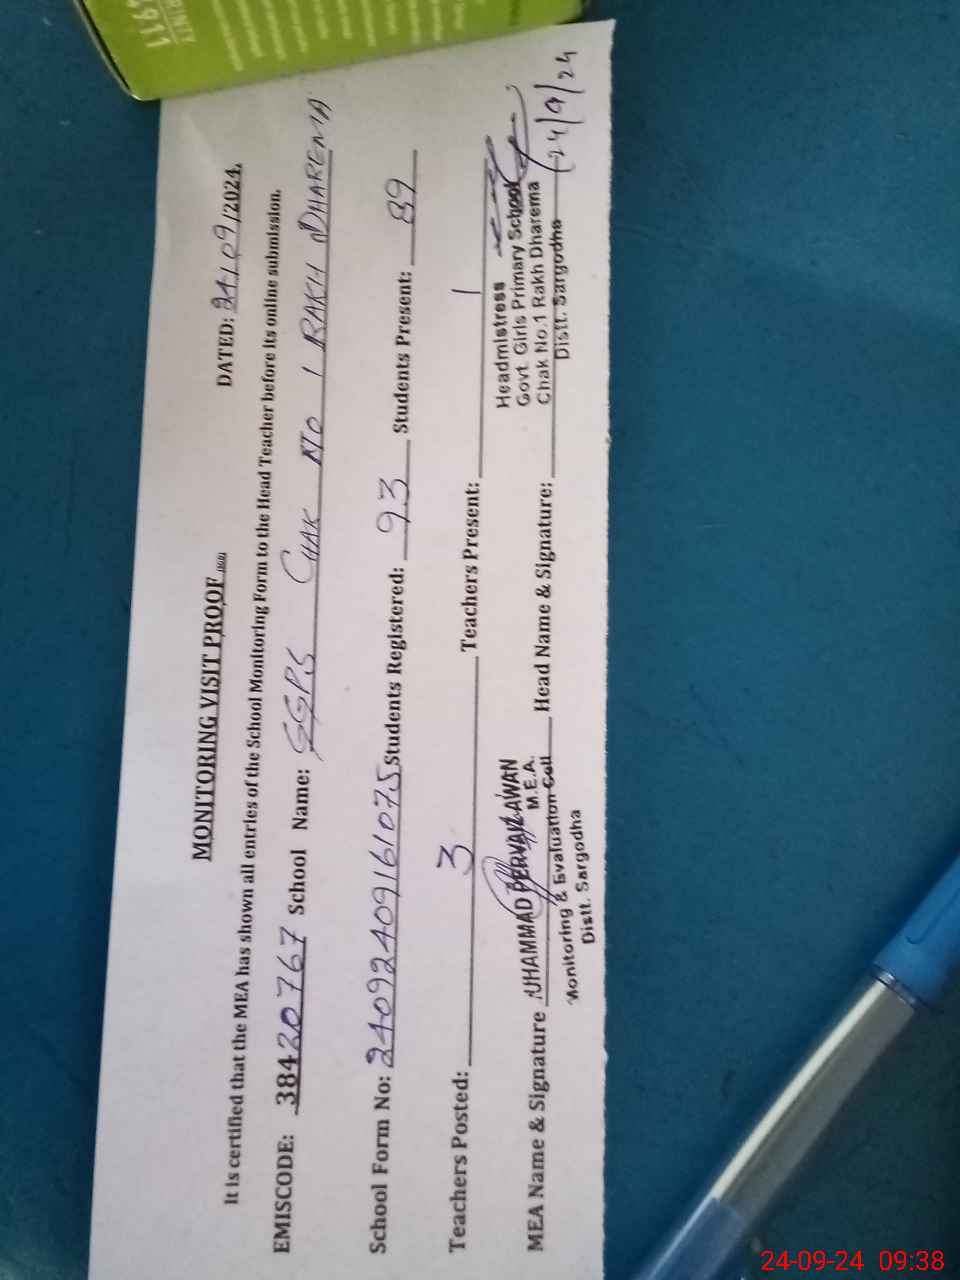 MONITORING VISIT PROOF
DATED: 24/09/2024.
It is certified that the MEA has shown all entries of the School Monitoring Form to the Head Teacher before its online submission.
EMISCODE: 38420767 School Name: GGPS CHAK NO 1 RAKH DHAREMA
School Form No: 24092409161075 Students Registered: 93 Students Present: 89
Teachers Posted: 3 Teachers Present: 1
MEA Name & Signature MUHAMMAD PERVAIZ AWAN Head Name & Signature:
M.E.A.
Monitoring & Evaluation Cell
Distt. Sargodha
Headmistress
Govt. Girls Primary School
Chak No.1 Rakh Dharema
Distt. Sargodha
24/9/24
24-09-24 09:38